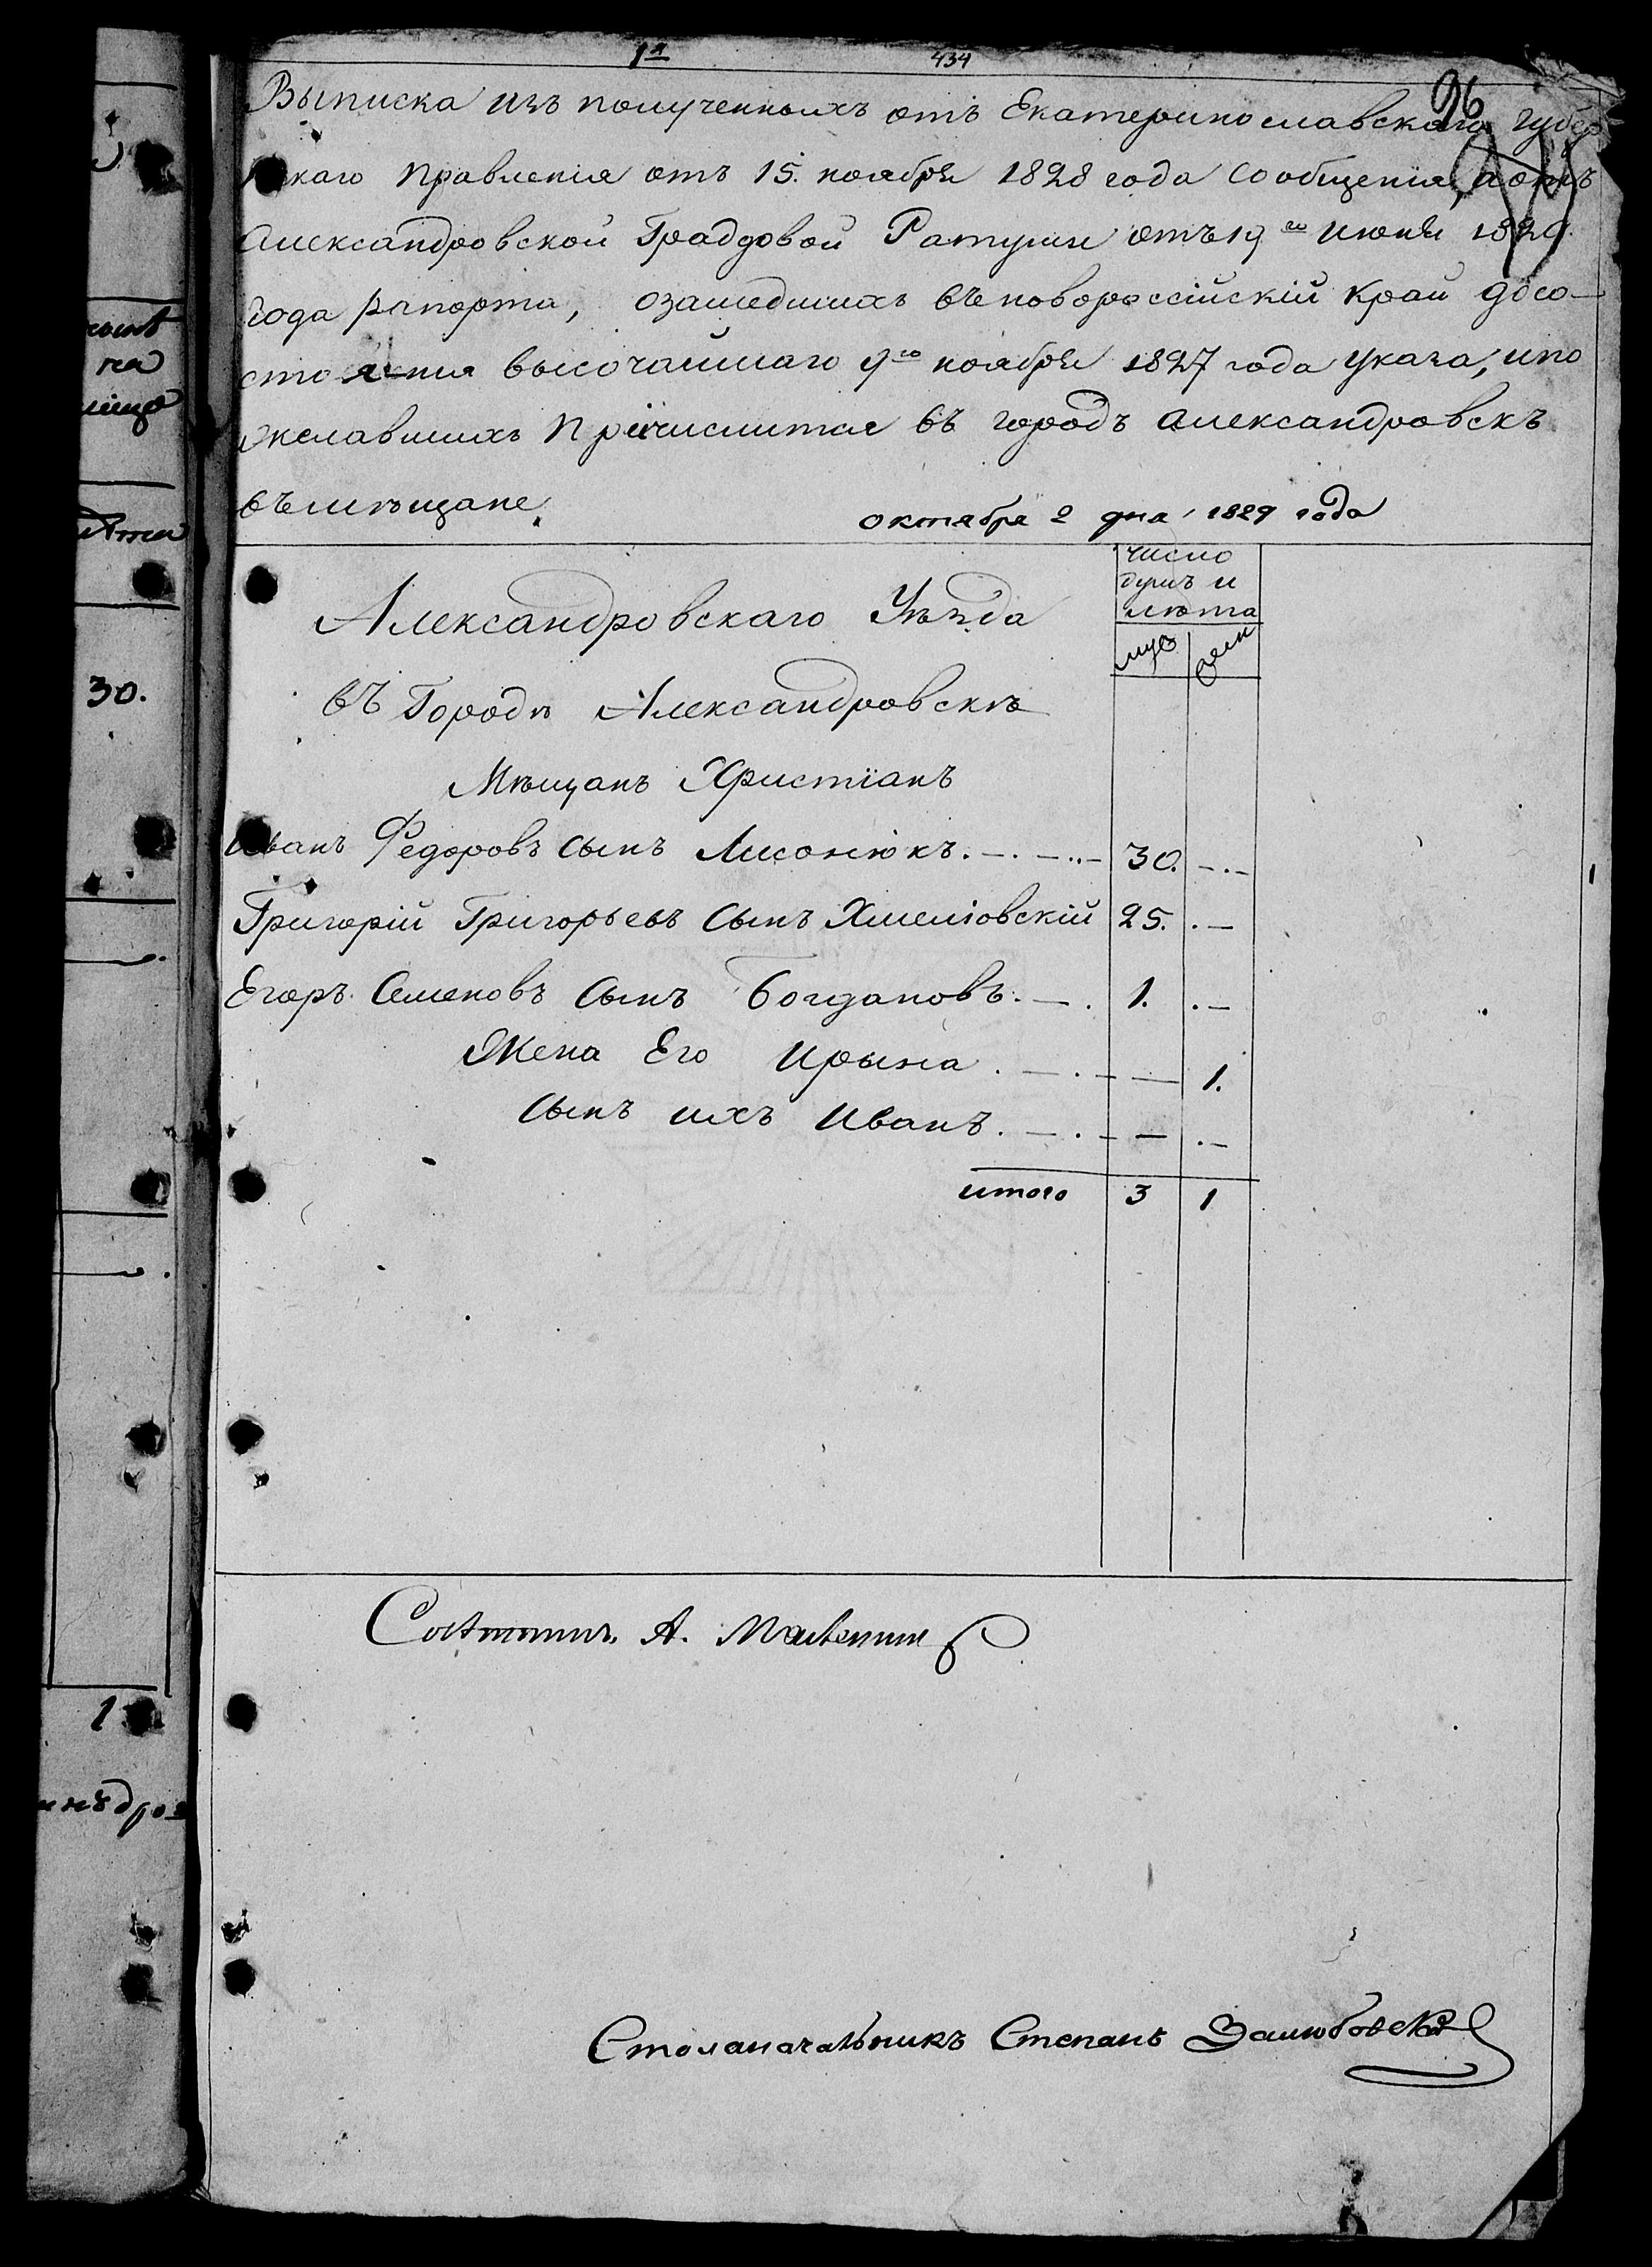 1я 434
96
Выписка изъ полученныхъ отъ Екатеринославскаго губер
нскаго Правленія отъ 15. ноября 1828 года сообщенія, иотъ
Александровской Градцовой Ратуши отъ 19го июня 1829.
года рапорта, озашедшихъ въ новороссійскій Край досо-
стоянія высочайшаго 9го ноября 1827 года указа, ипо
желавшихъ Причислится въ городъ Александровскъ
въ мѣщане.
октября 2 дня 1829 года
число
душъ и
лѣта
муж жен
Александровскаго Уѣзда
въ Городѣ Александровскѣ
Мѣщанъ Христіанъ
Иванъ Федоровъ сынъ Лисонюкъ. 30.
Григорій Григорьевъ сынъ Хмелювскій 25.
Егоръ Семеновъ сынъ Богдановъ. 1.
Жена Его Ирына 1.
сынъ ихъ Иванъ.
итого 3 1
А.
Столаначальникъ Степанъ
30.
1